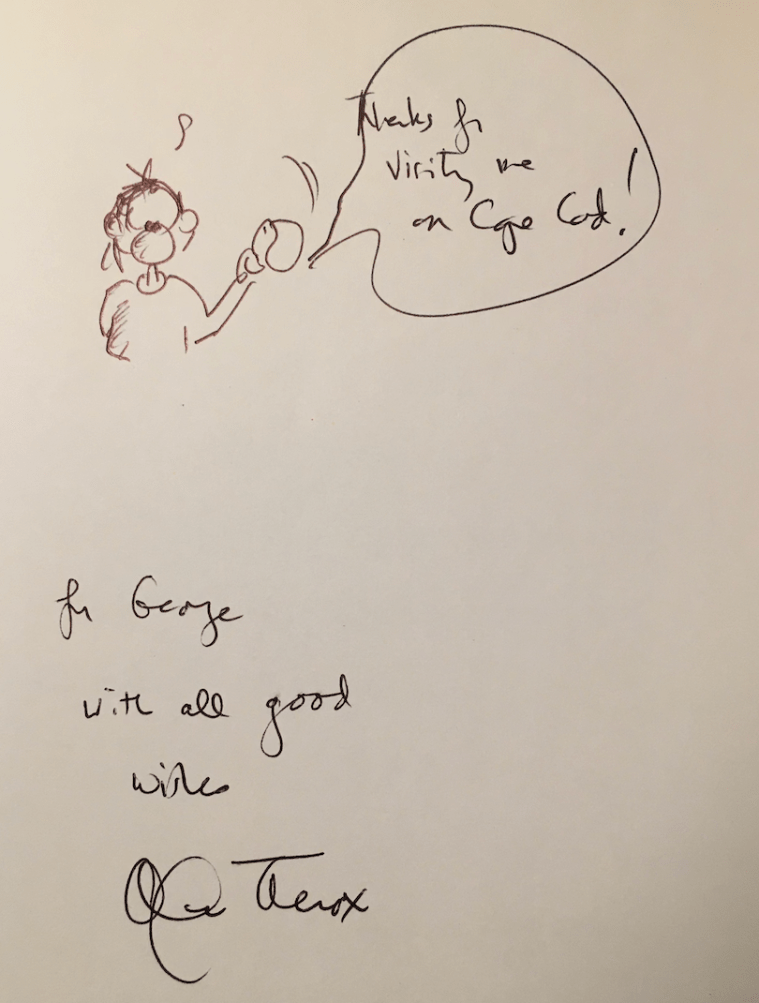 Thanks for
visiting me
on Cape Cod!
for George
with all good
wishes
Alex Theroux